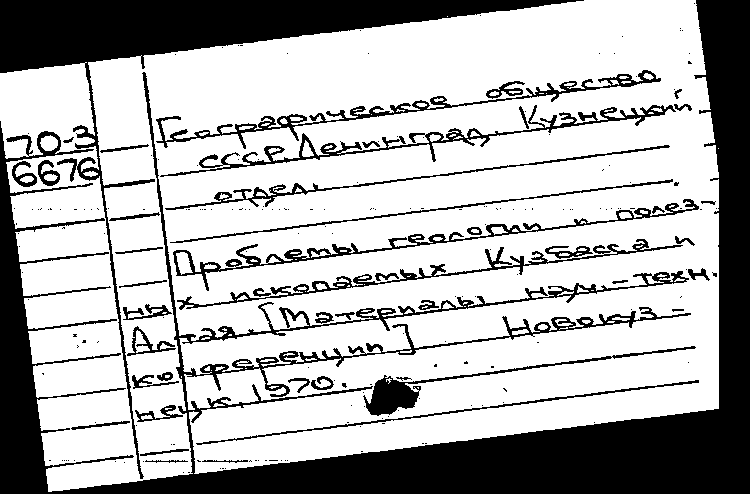 70-3
6676
Географическое общество
СССР. Ленинград. Кузнецкий
отдел.
Проблемы геологии и полез-
ных ископаемых Кузбасса и
Алтая. [Материалы науч.-техн.
конференции] Новокуз-
нецк, 1970.